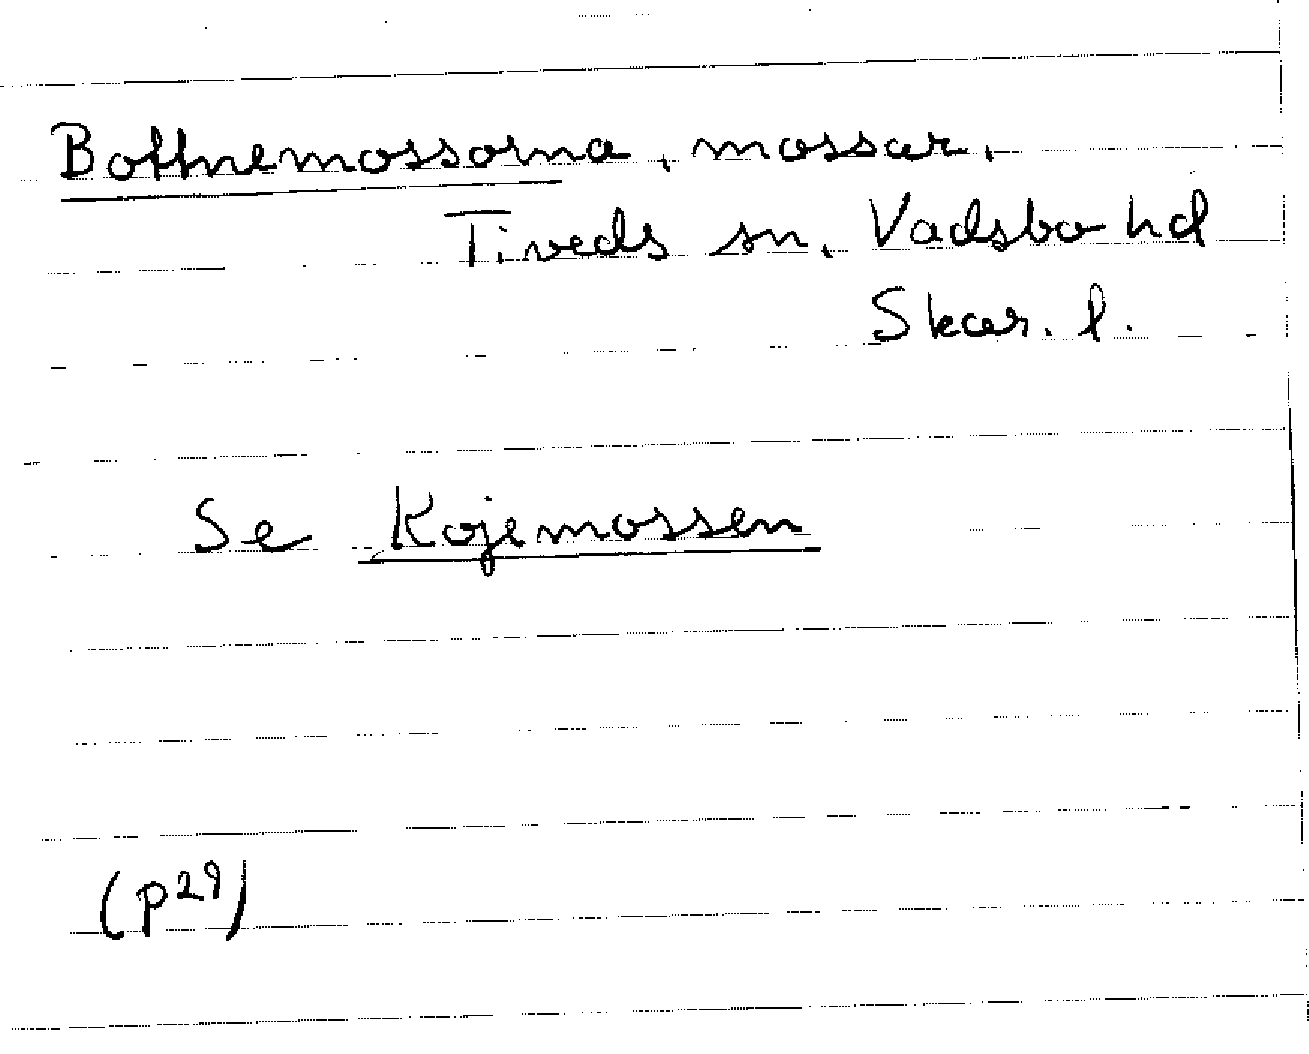 Bottnemossorna, mossar,
Tiveds sn, Vadsbo hd
Skar. l.
Se Kojemossen
(p29)